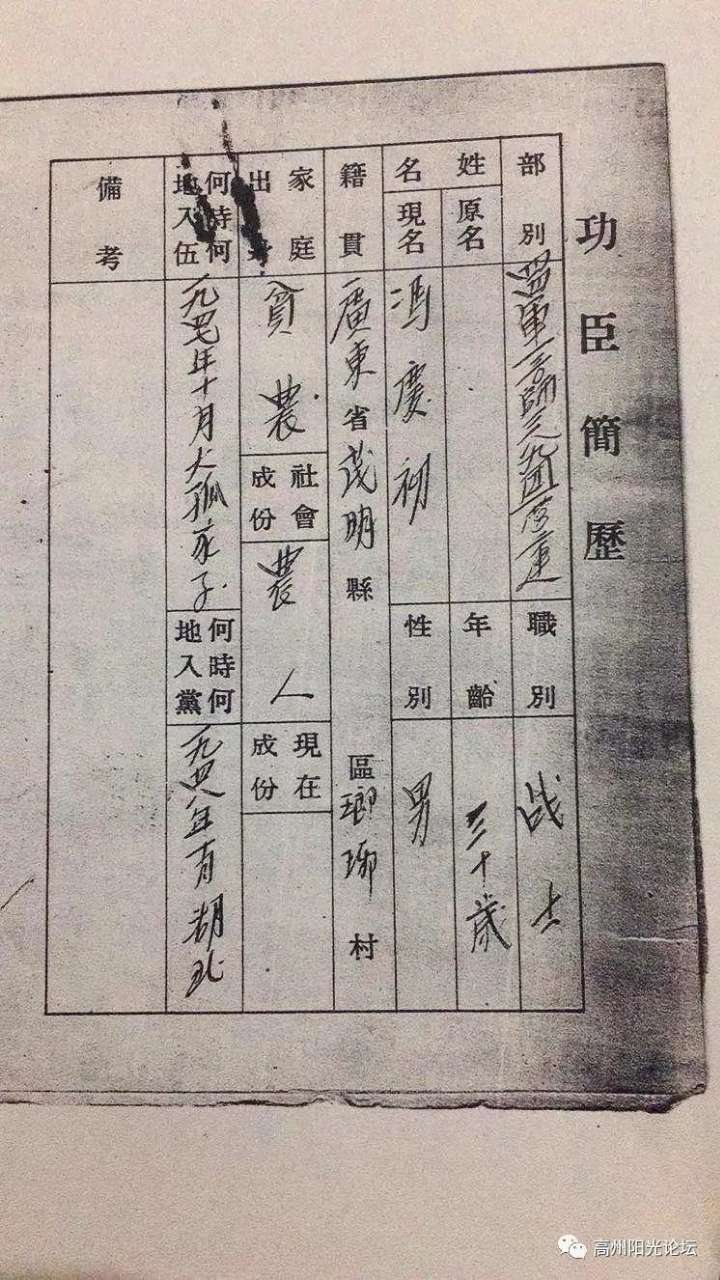 功臣簡歷
部別
職別 战士
姓名
原名
年齡 三十歲
現名 馮慶初
性別 男
籍貫 廣東省茂明縣 區瑯琊村
家庭出身 貧農
社會成份 農人
現在成份
何時何地入伍 一九四七年十月大孤家子
何時何地入黨 一九四八年 湖北
備考
高州阳光论坛